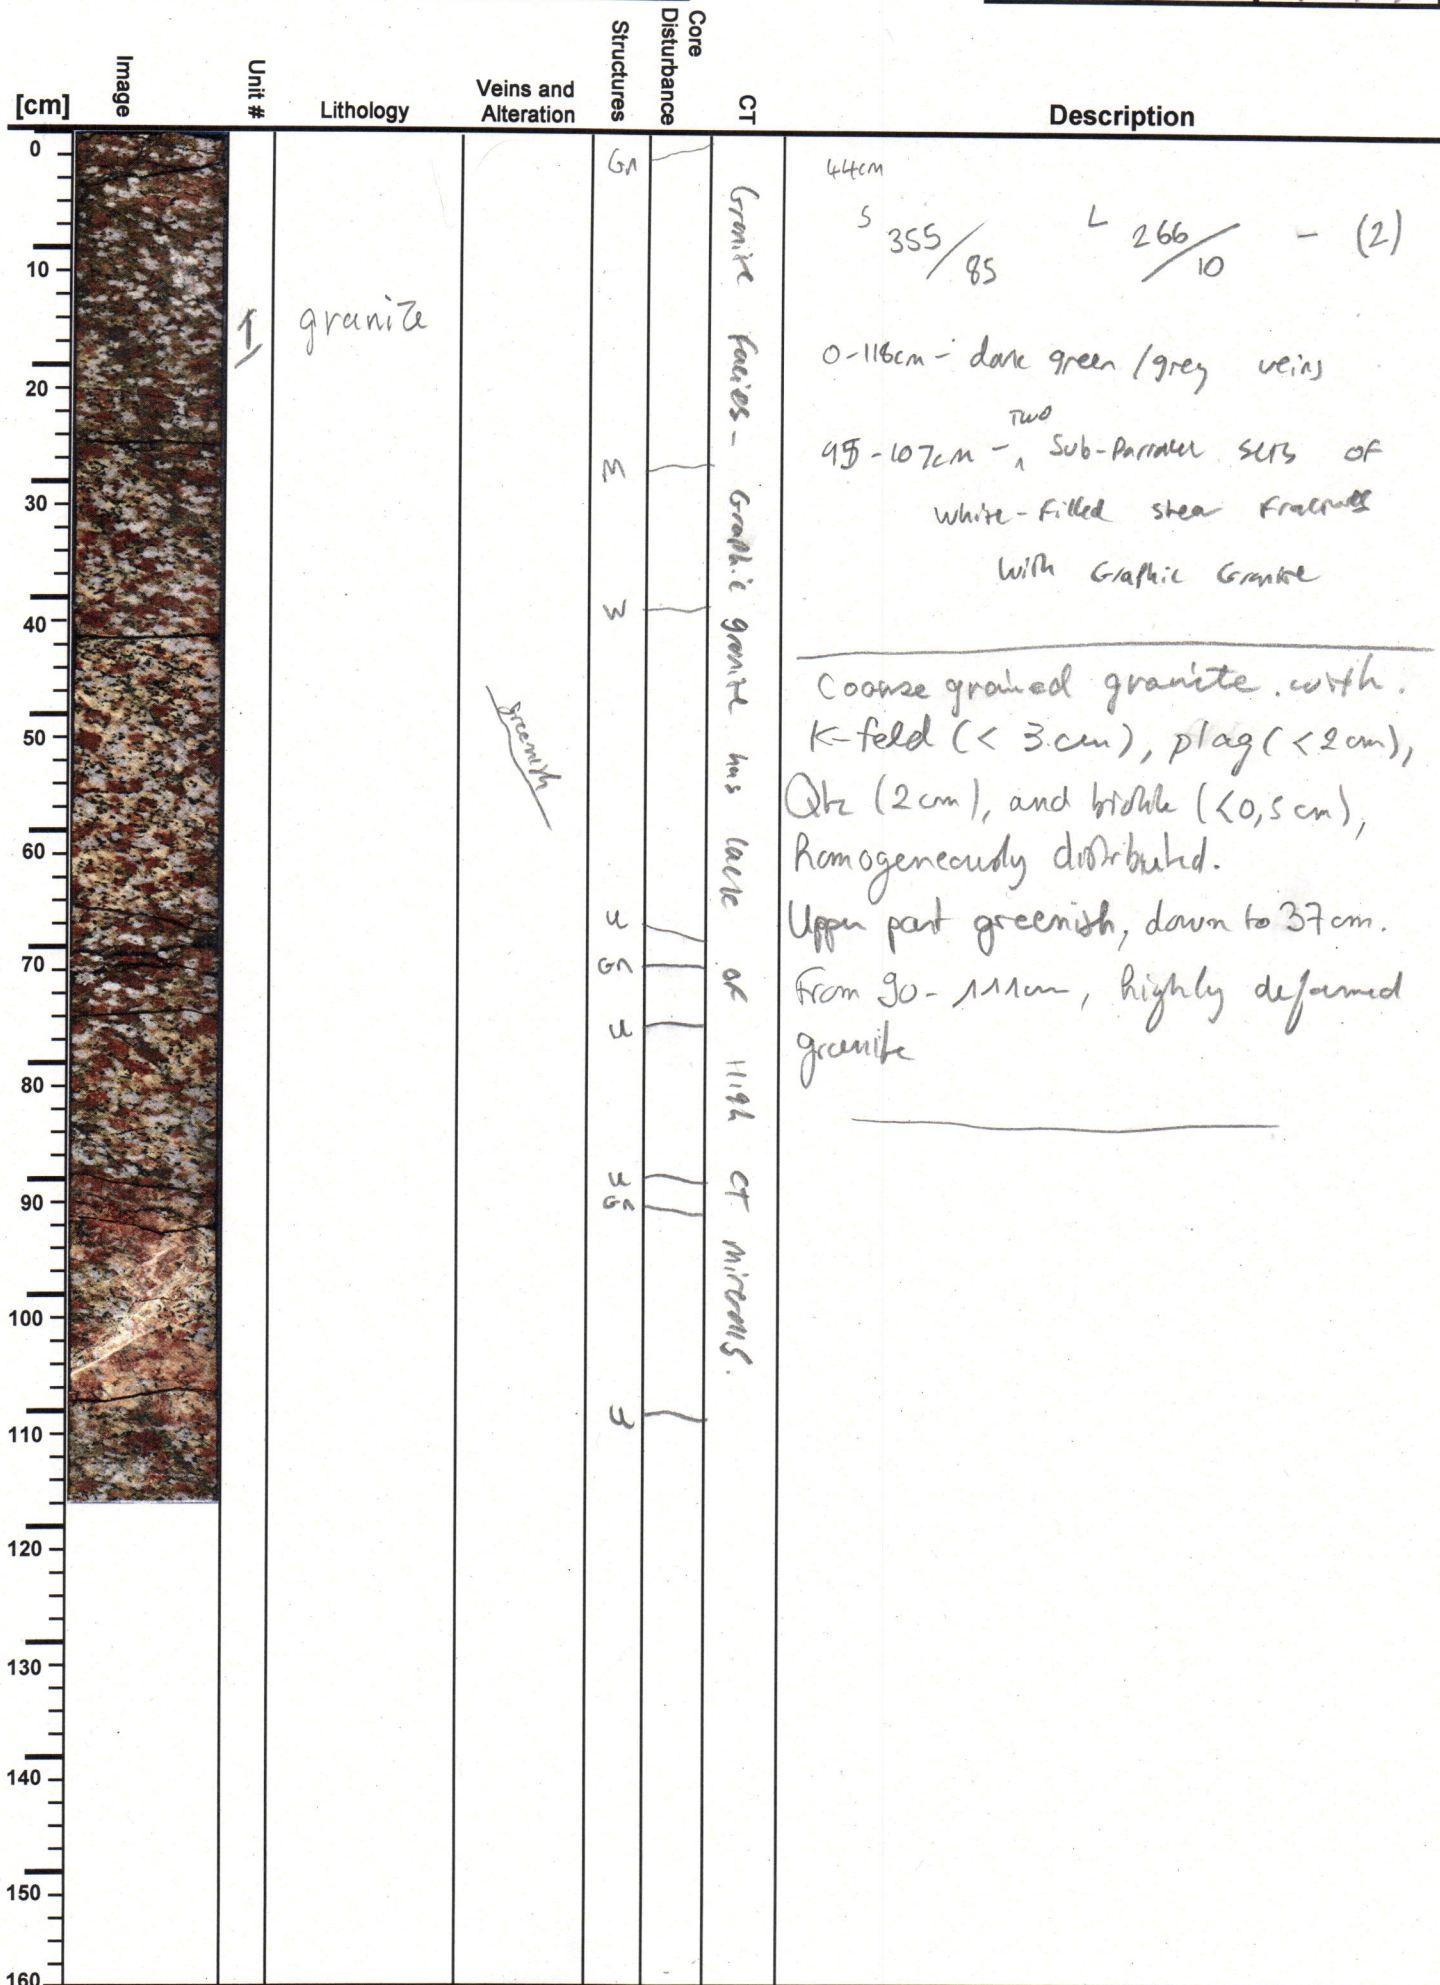 [cm]
Image
Unit #
Lithology
Veins and
Alteration
Structures
Core
Disturbance
CT
Description
0
10
20
30
40
50
60
70
80
90
100
110
120
130
140
150
160
1
granite
greenish
Gn
M
W
U
Gn
U
U
Gn
U
Granite facies - Graphic granite has lack of High CT minerals.
44cm
S 355/85 L 266/10 - (2)
0-118cm - dark green/grey veins
Two
95-107cm - Sub-Parallel sets of
White-Filled shear Fractures
With Graphic Granite
Coarse grained granite with
K-feld (< 3 cm), plag (<2 cm),
Qtz (2 cm), and biotite (<0,5 cm),
homogeneously distributed.
Upper part greenish, down to 37 cm.
From 90 - 111cm, highly deformed
granite